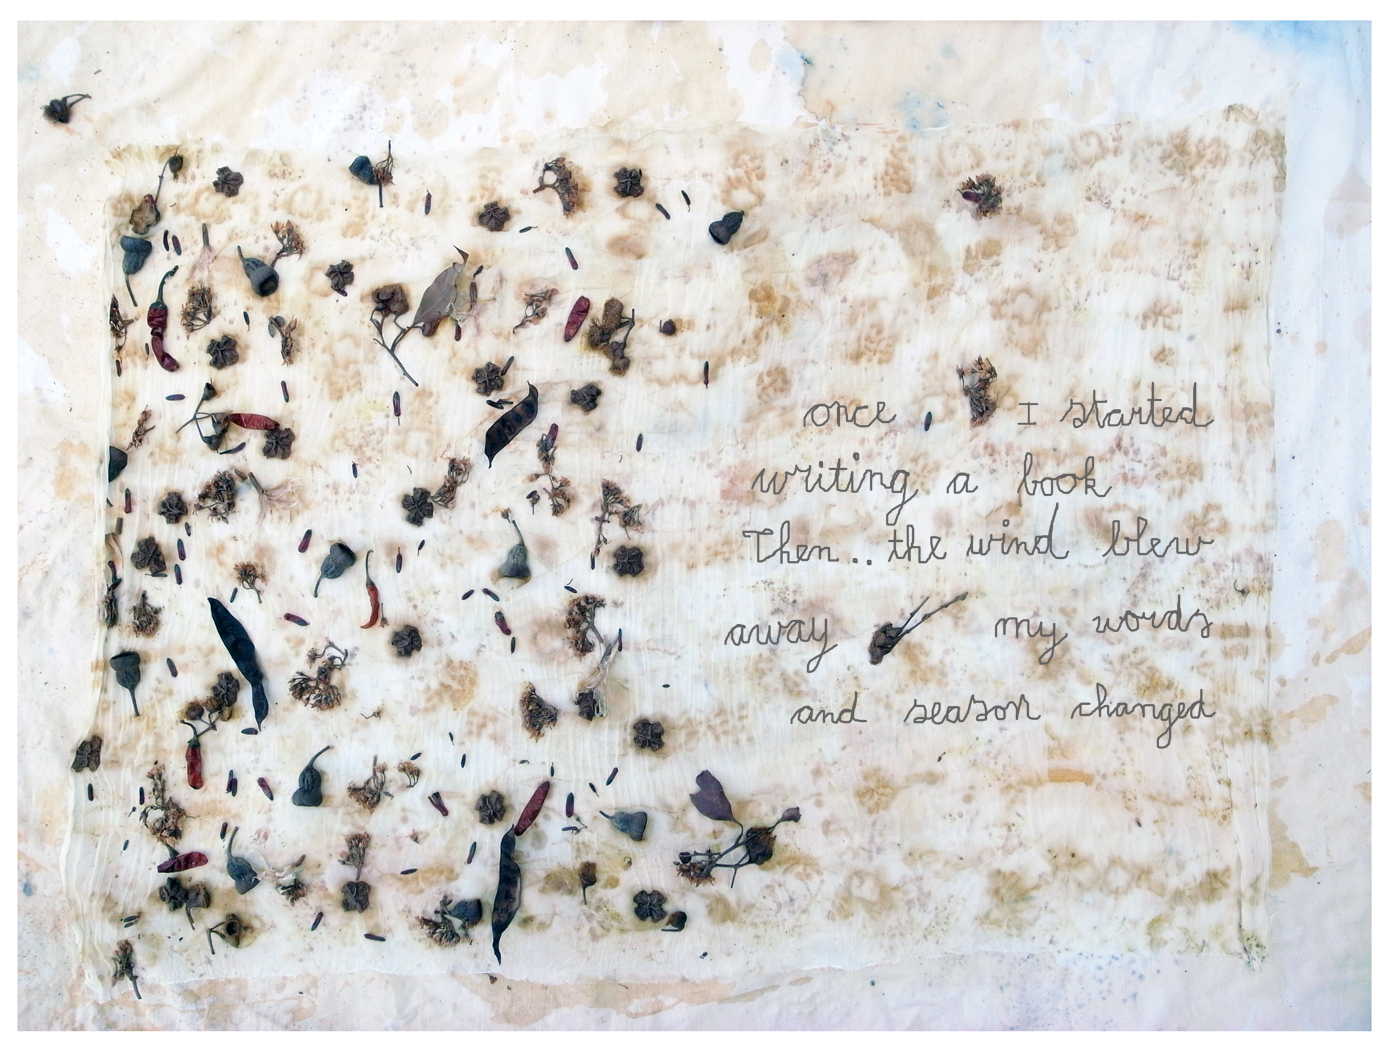 once I started
writing a book
Then.. the wind blew
away my words
and season changed